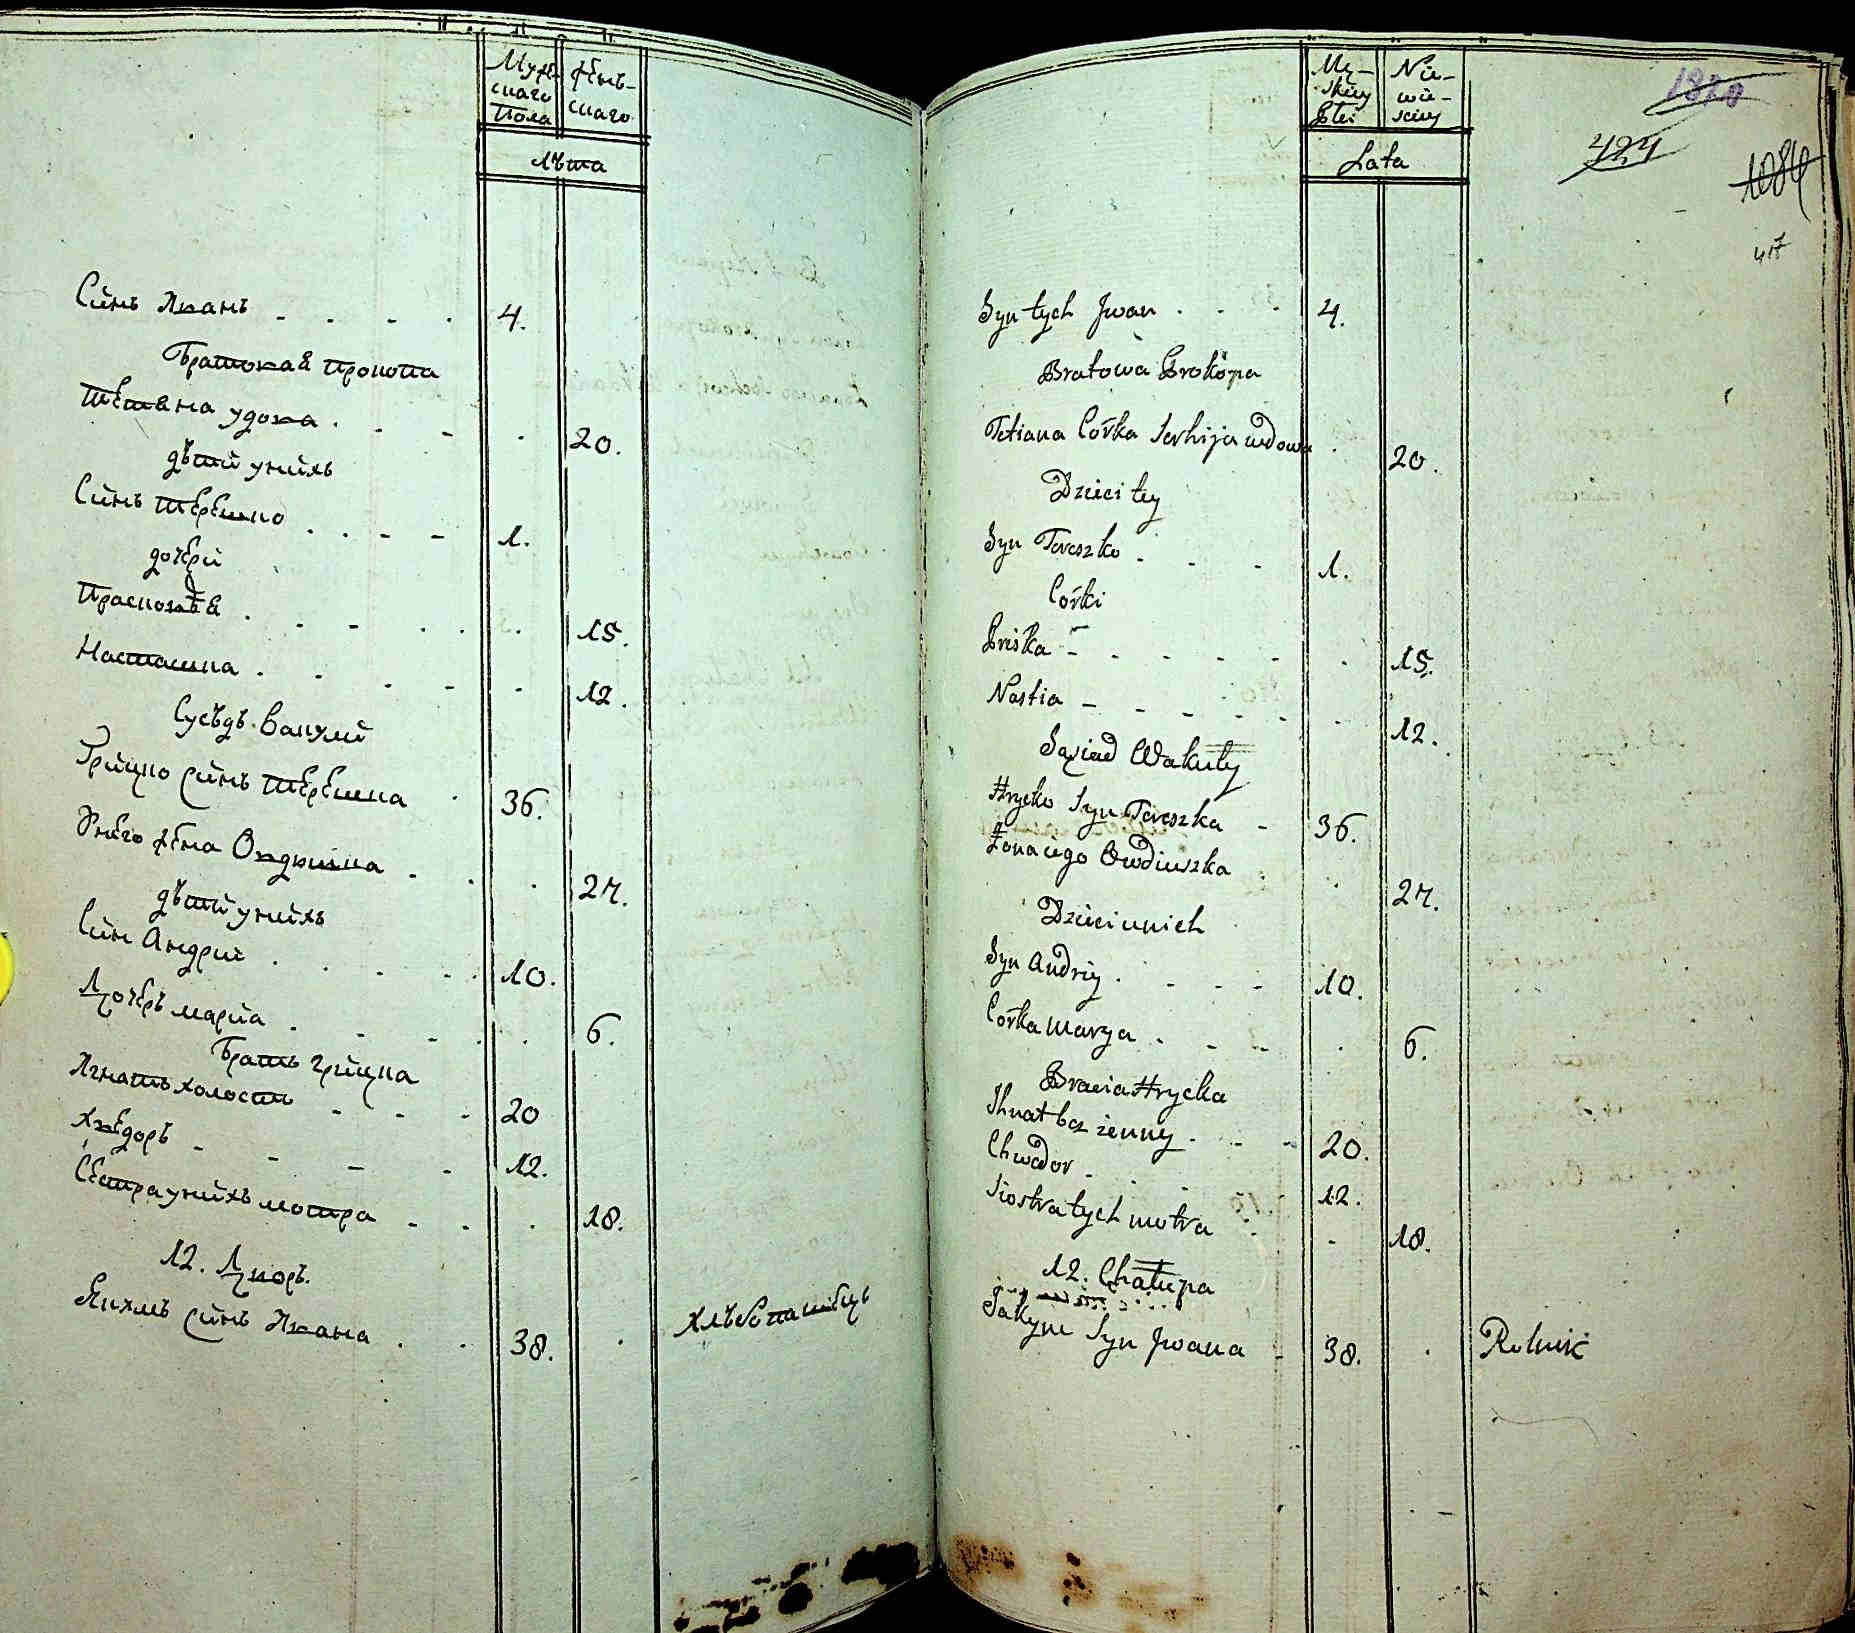 Мужескаго Пола
Женьскаго
Лѣта
Синъ Иванъ 4.
Братовая Прокопа
Тетяна удова 20.
дѣти унихъ
Синъ Терешко 1.
дочери
Прасковѣя 15.
Насташка 12.
Сусѣдъ Вакули
Грицко синъ Терешка 36.
Унего жена Овдюшка 27.
дѣти унихъ
Син Андрий 10.
Дочеръ мария 6.
Братъ грицка
Игнатъ холостъ 20
Хведоръ 12.
Сестра унихъ мотра 18.
12. Дворъ.
Якимъ синъ Ивана 38. хлѣбопашецъ
Męskiey Płci
Niewieściey
Lata
1820
424
1084
417
Syn tych Jwan 4.
Bratowa Prokopa
Tetiana Corka Serhija wdowa 20.
Dzieci tey
Syn Tereszko 1.
Corki
Priska 15.
Nastia 12.
Sąsiad Wakuły
Hrycko Syn Tereszka 36.
Żona iego Owdiuszka 27.
Dzieci unich
Syn Andriy 10.
Corka Marya 6.
Bracia Hrycka
Ihnat bez żenny 20.
Chwedor 12.
Siostra tych motra 18.
12. Chałupa
Jakym Syn Jwana 38. Rolnik